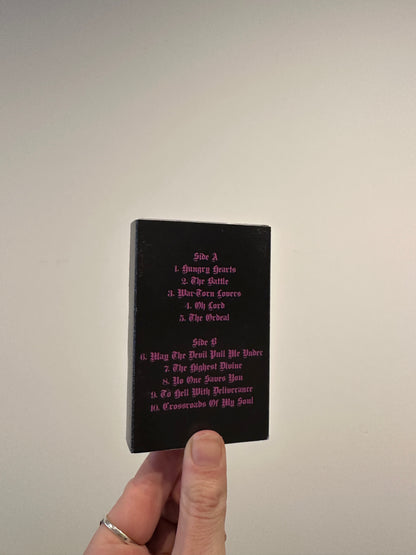 Side A
1. Hungry Hearts
2. The Battle
3. War-Torn Lovers
4. Oh Lord
5. The Ordeal
Side B
6. May The Devil Pull Me Under
7. The Highest Divine
8. No One Saves You
9. To Hell With Deliverance
10. Crossroads Of My Soul